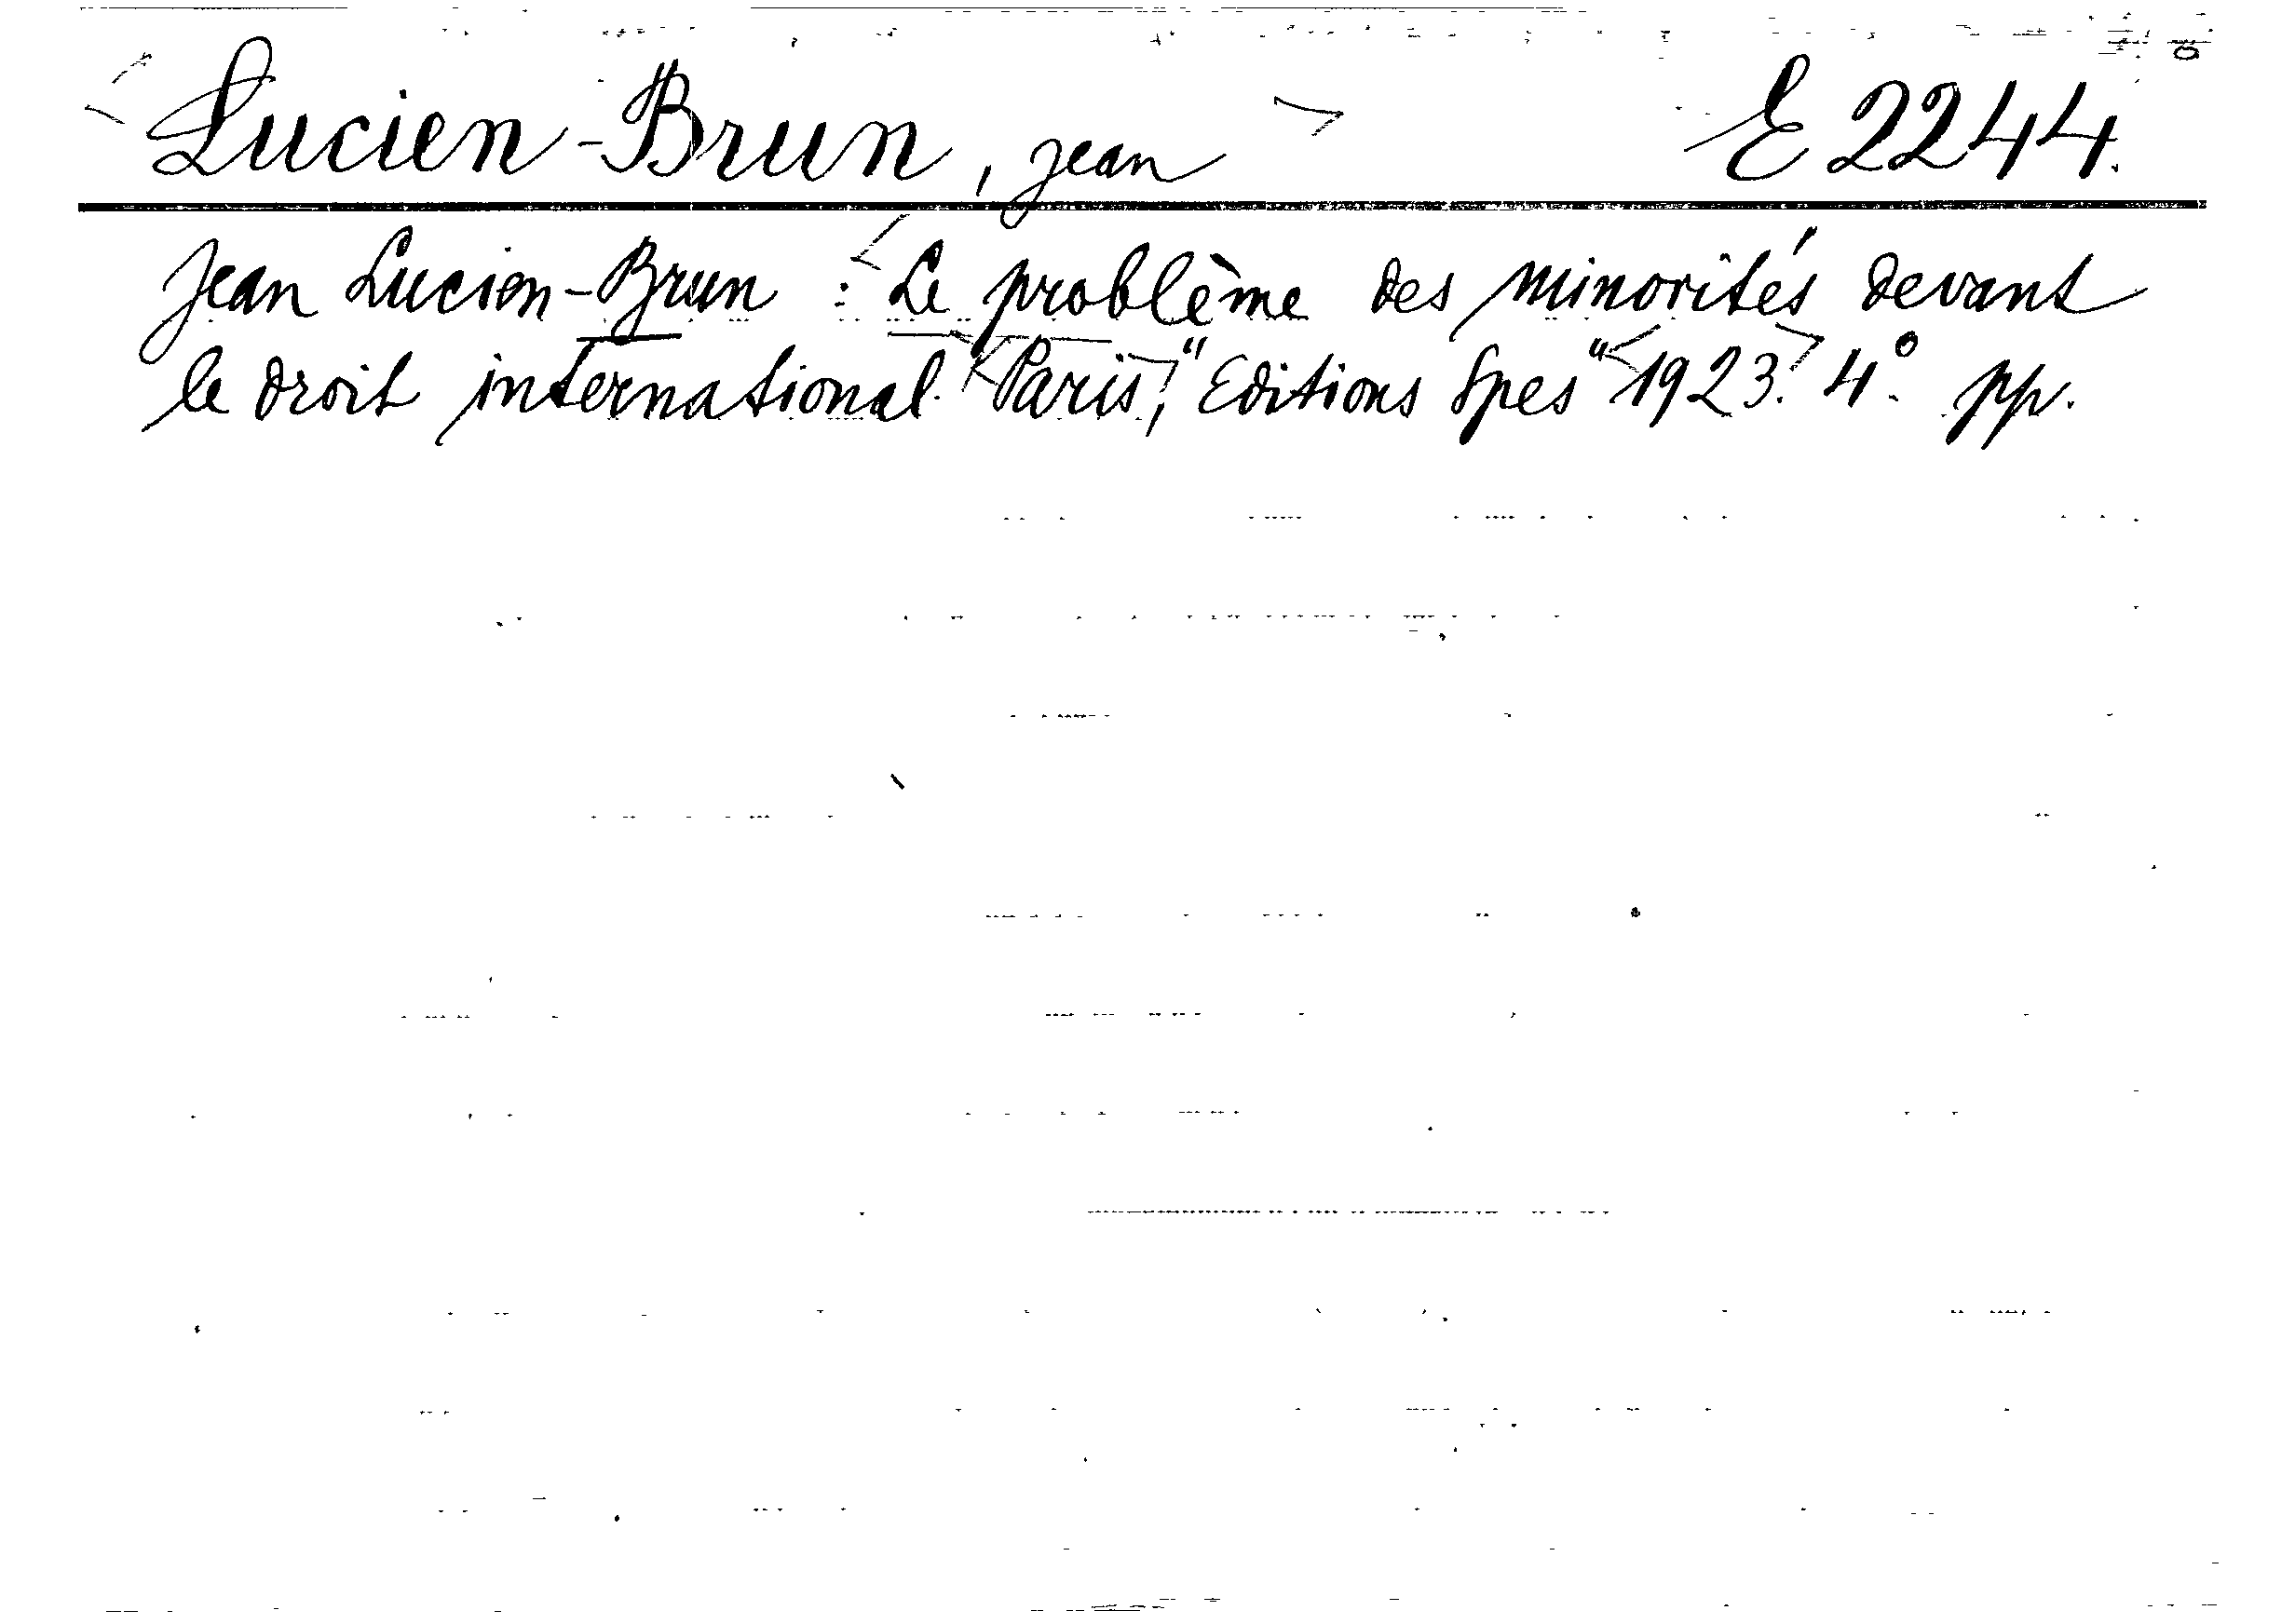 Lucien-Brun, Jean E 2244.
Jean Lucien-Brun : Le problème des minorités devant
le droit international. Paris, "Editions Spes" 1923. 4° pp.